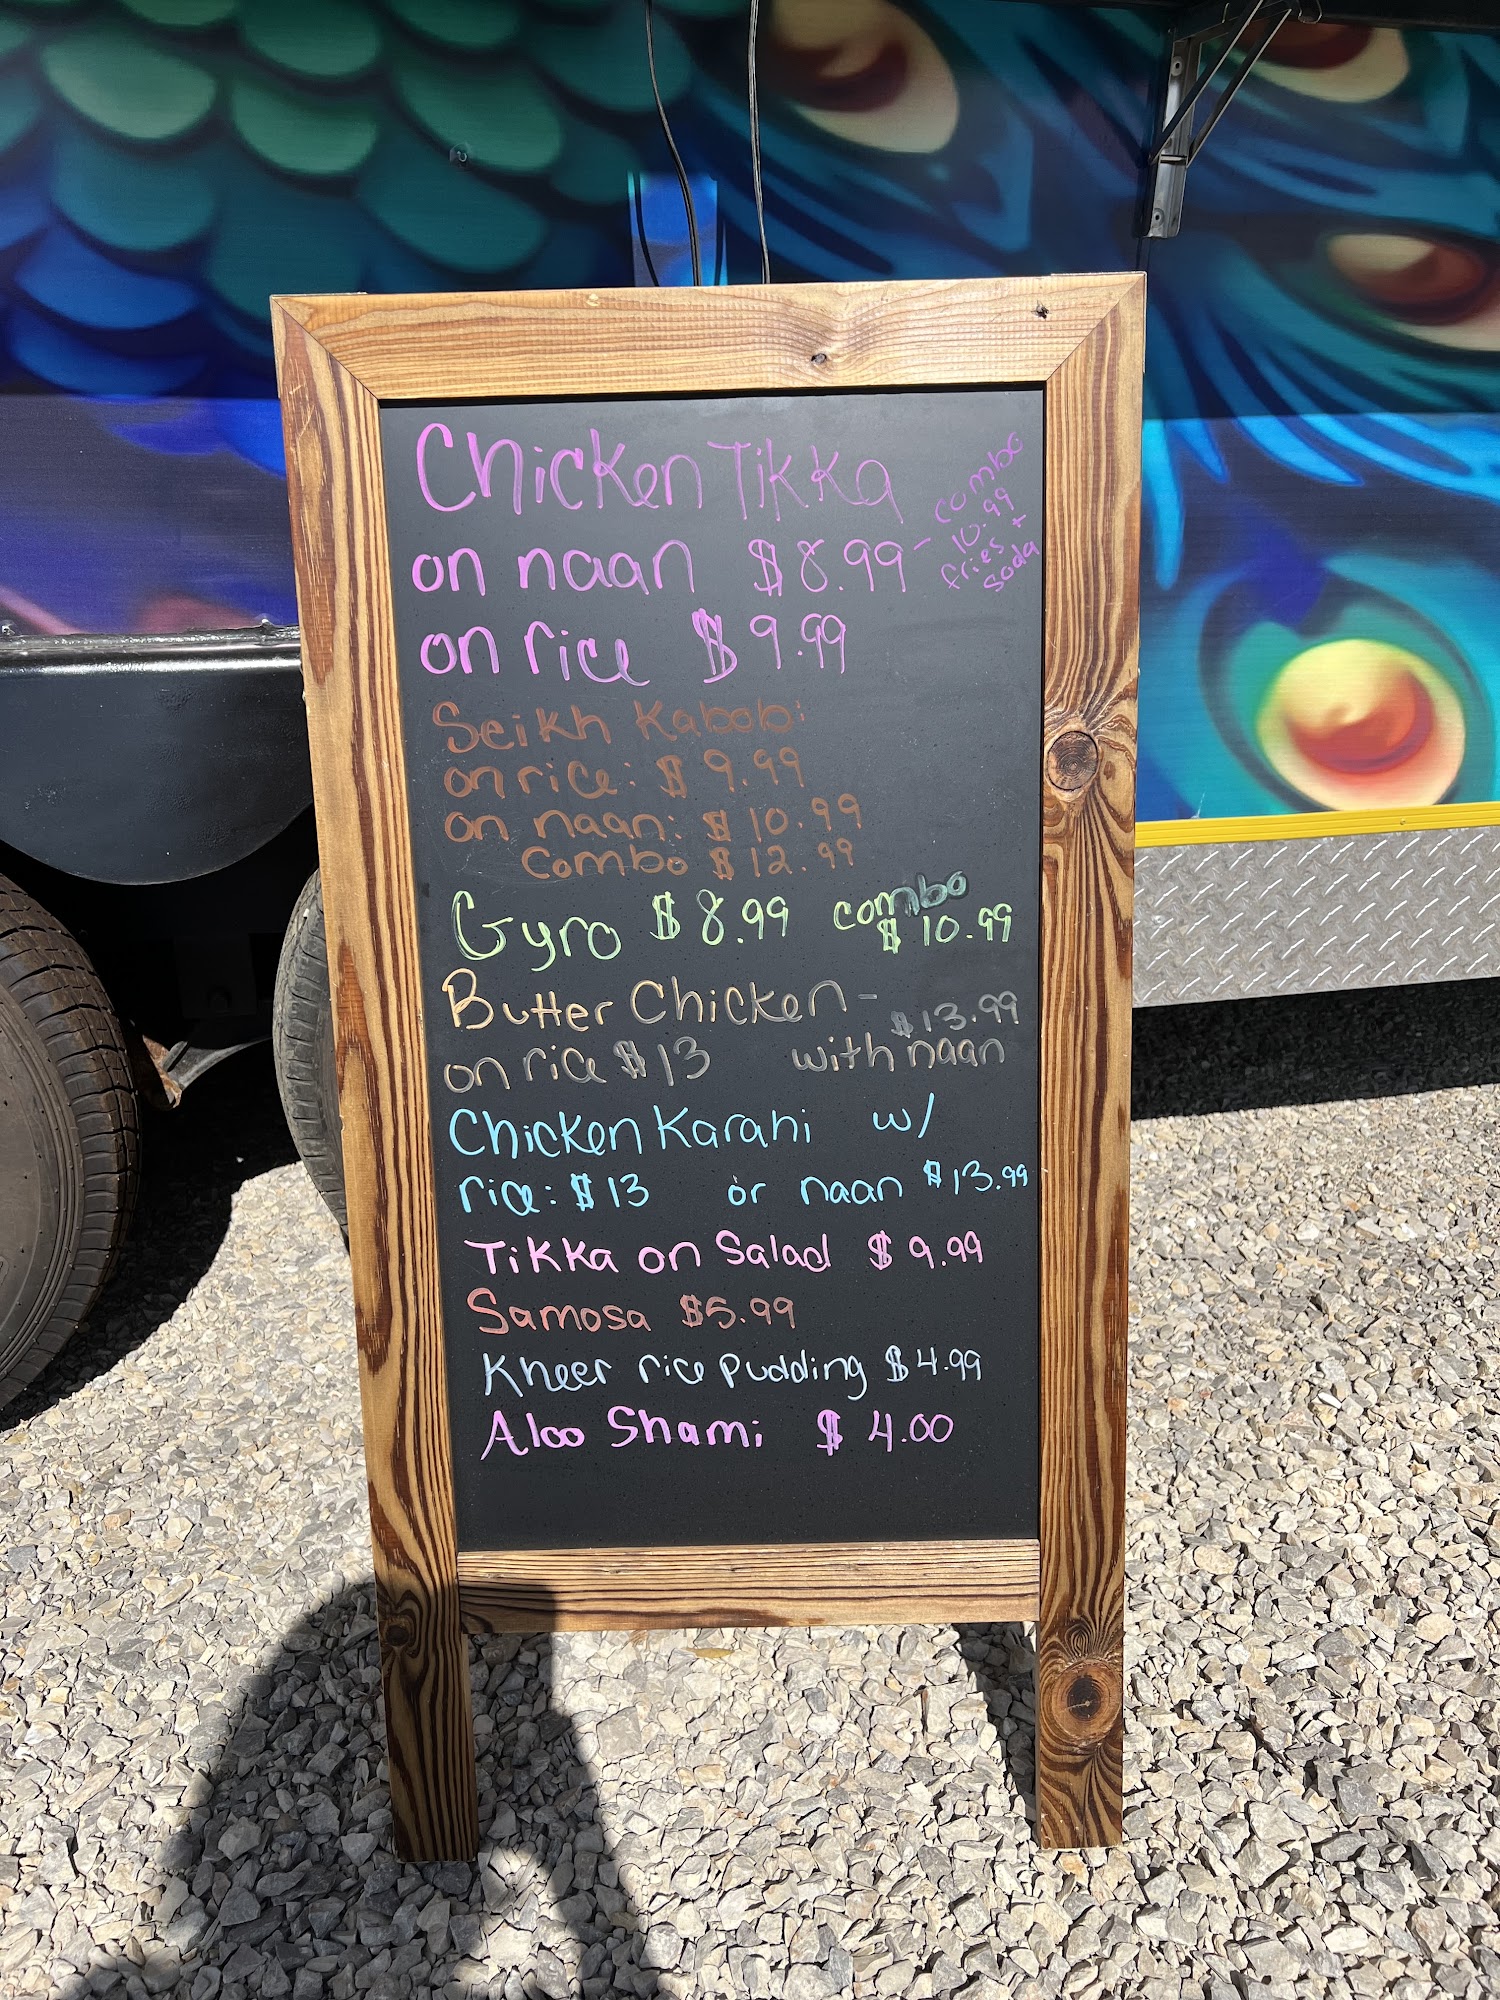 Chicken Tikka
on naan $8.99 - combo
10.99
fries +
soda
on rice $9.99
Seikh Kabob:
on rice: $9.99
on naan: $10.99
combo $12.99
Gyro $8.99 combo
$10.99
Butter Chicken -
on rice $13 with naan $13.99
Chicken Karahi w/
rice: $13 or naan $13.99
Tikka on Salad $9.99
Samosa $5.99
Kheer rice pudding $4.99
Aloo Shami $4.00